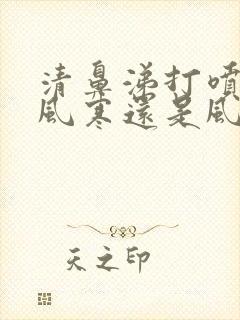 清鼻涕打噴
風寒還是風
天之印